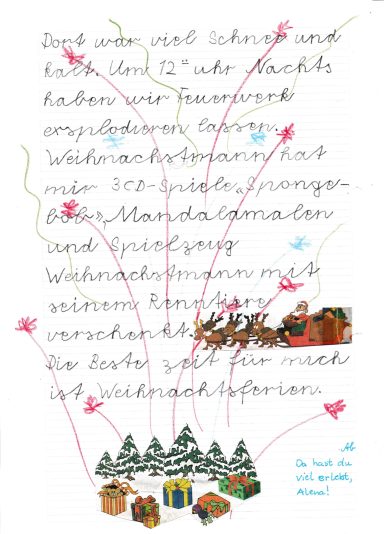 Dort war viel Schnee und
kalt. Um 12°° uhr Nachts
haben wir Feuerwerk
ersplodieren lassen.
Weihnachstmann hat
mir 3CD-Spiele „Sponge-
bob“, Mandalamalen
und Spielzeug
Weihnachstmann mit
seinem Renntiere
verschenkt.
Die Beste zeit für mich
ist Weihnachtsferien.
Ab
Da hast du
viel erlebt,
Alena!